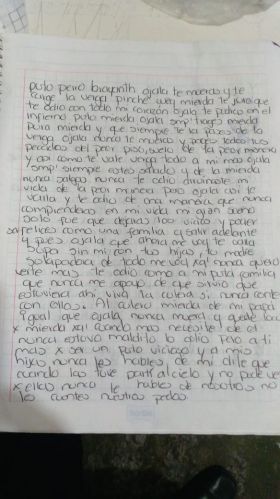 puto perro brayanth ojala te mueras y te
cargue la verga pinche wey mierda te juro que
te odio con todo mi corazón ojala te pudras en el
infierno puto mierda ojala smp tragues mierda
pura mierda y que siempre te la pases de la
verga ojala nunca te mueras y pagues todos tus
pecados del peor piso, suelo de la peor manera
y así como te vale verga todo a mi mas ojala
smp siempre estes salado y de la mierda
nunca salgas nunca te odio arruinaste mi
vida de la peor manera puto ojala así te
vaya y te odio de una manera que nunca
comprenderas en mi vida mi gran sueño
solo fue que dejaras los vicios y poner
ser felices como una familia y salir adelante
y pues ojala que ahora me voy te valla
super sin mi con tus hijas tu madre
solapadora de todo me voy xq nunca quiero
verte mas te odio como a mi puta familia
que nunca me apoyo de que sirvio que
estuvieran ahí viva tu cuenta si nunca conte
con ellos ni al culero mierda de mi papá
igual que ojala nunca muera y quede loco
x mierda xq cuando mas necesite de el
nunca estuvo maldito lo odio pero a ti
mas x ser un puto vicioso y a mis
hijas nunca les hables de mi dile que
cuando las tuve partí al cielo y no pude ver
x ellas nunca le hables de nosotros no
les cuentes nuestros pedos.